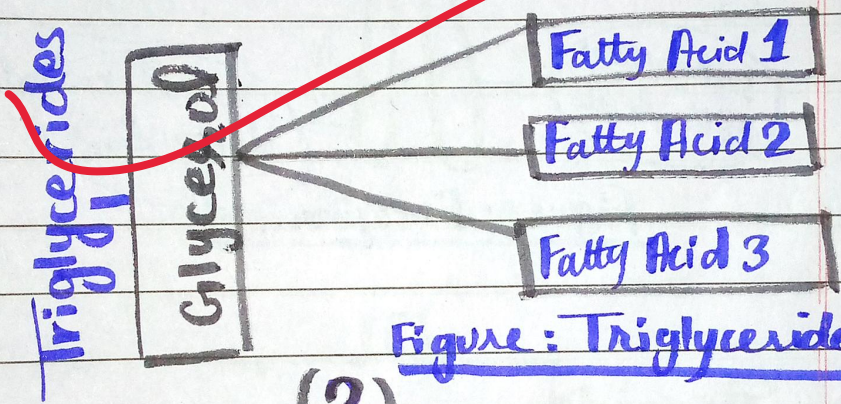 Triglycerides
Glycerol
Fatty Acid 1
Fatty Acid 2
Fatty Acid 3
Figure: Triglyceride
(2)